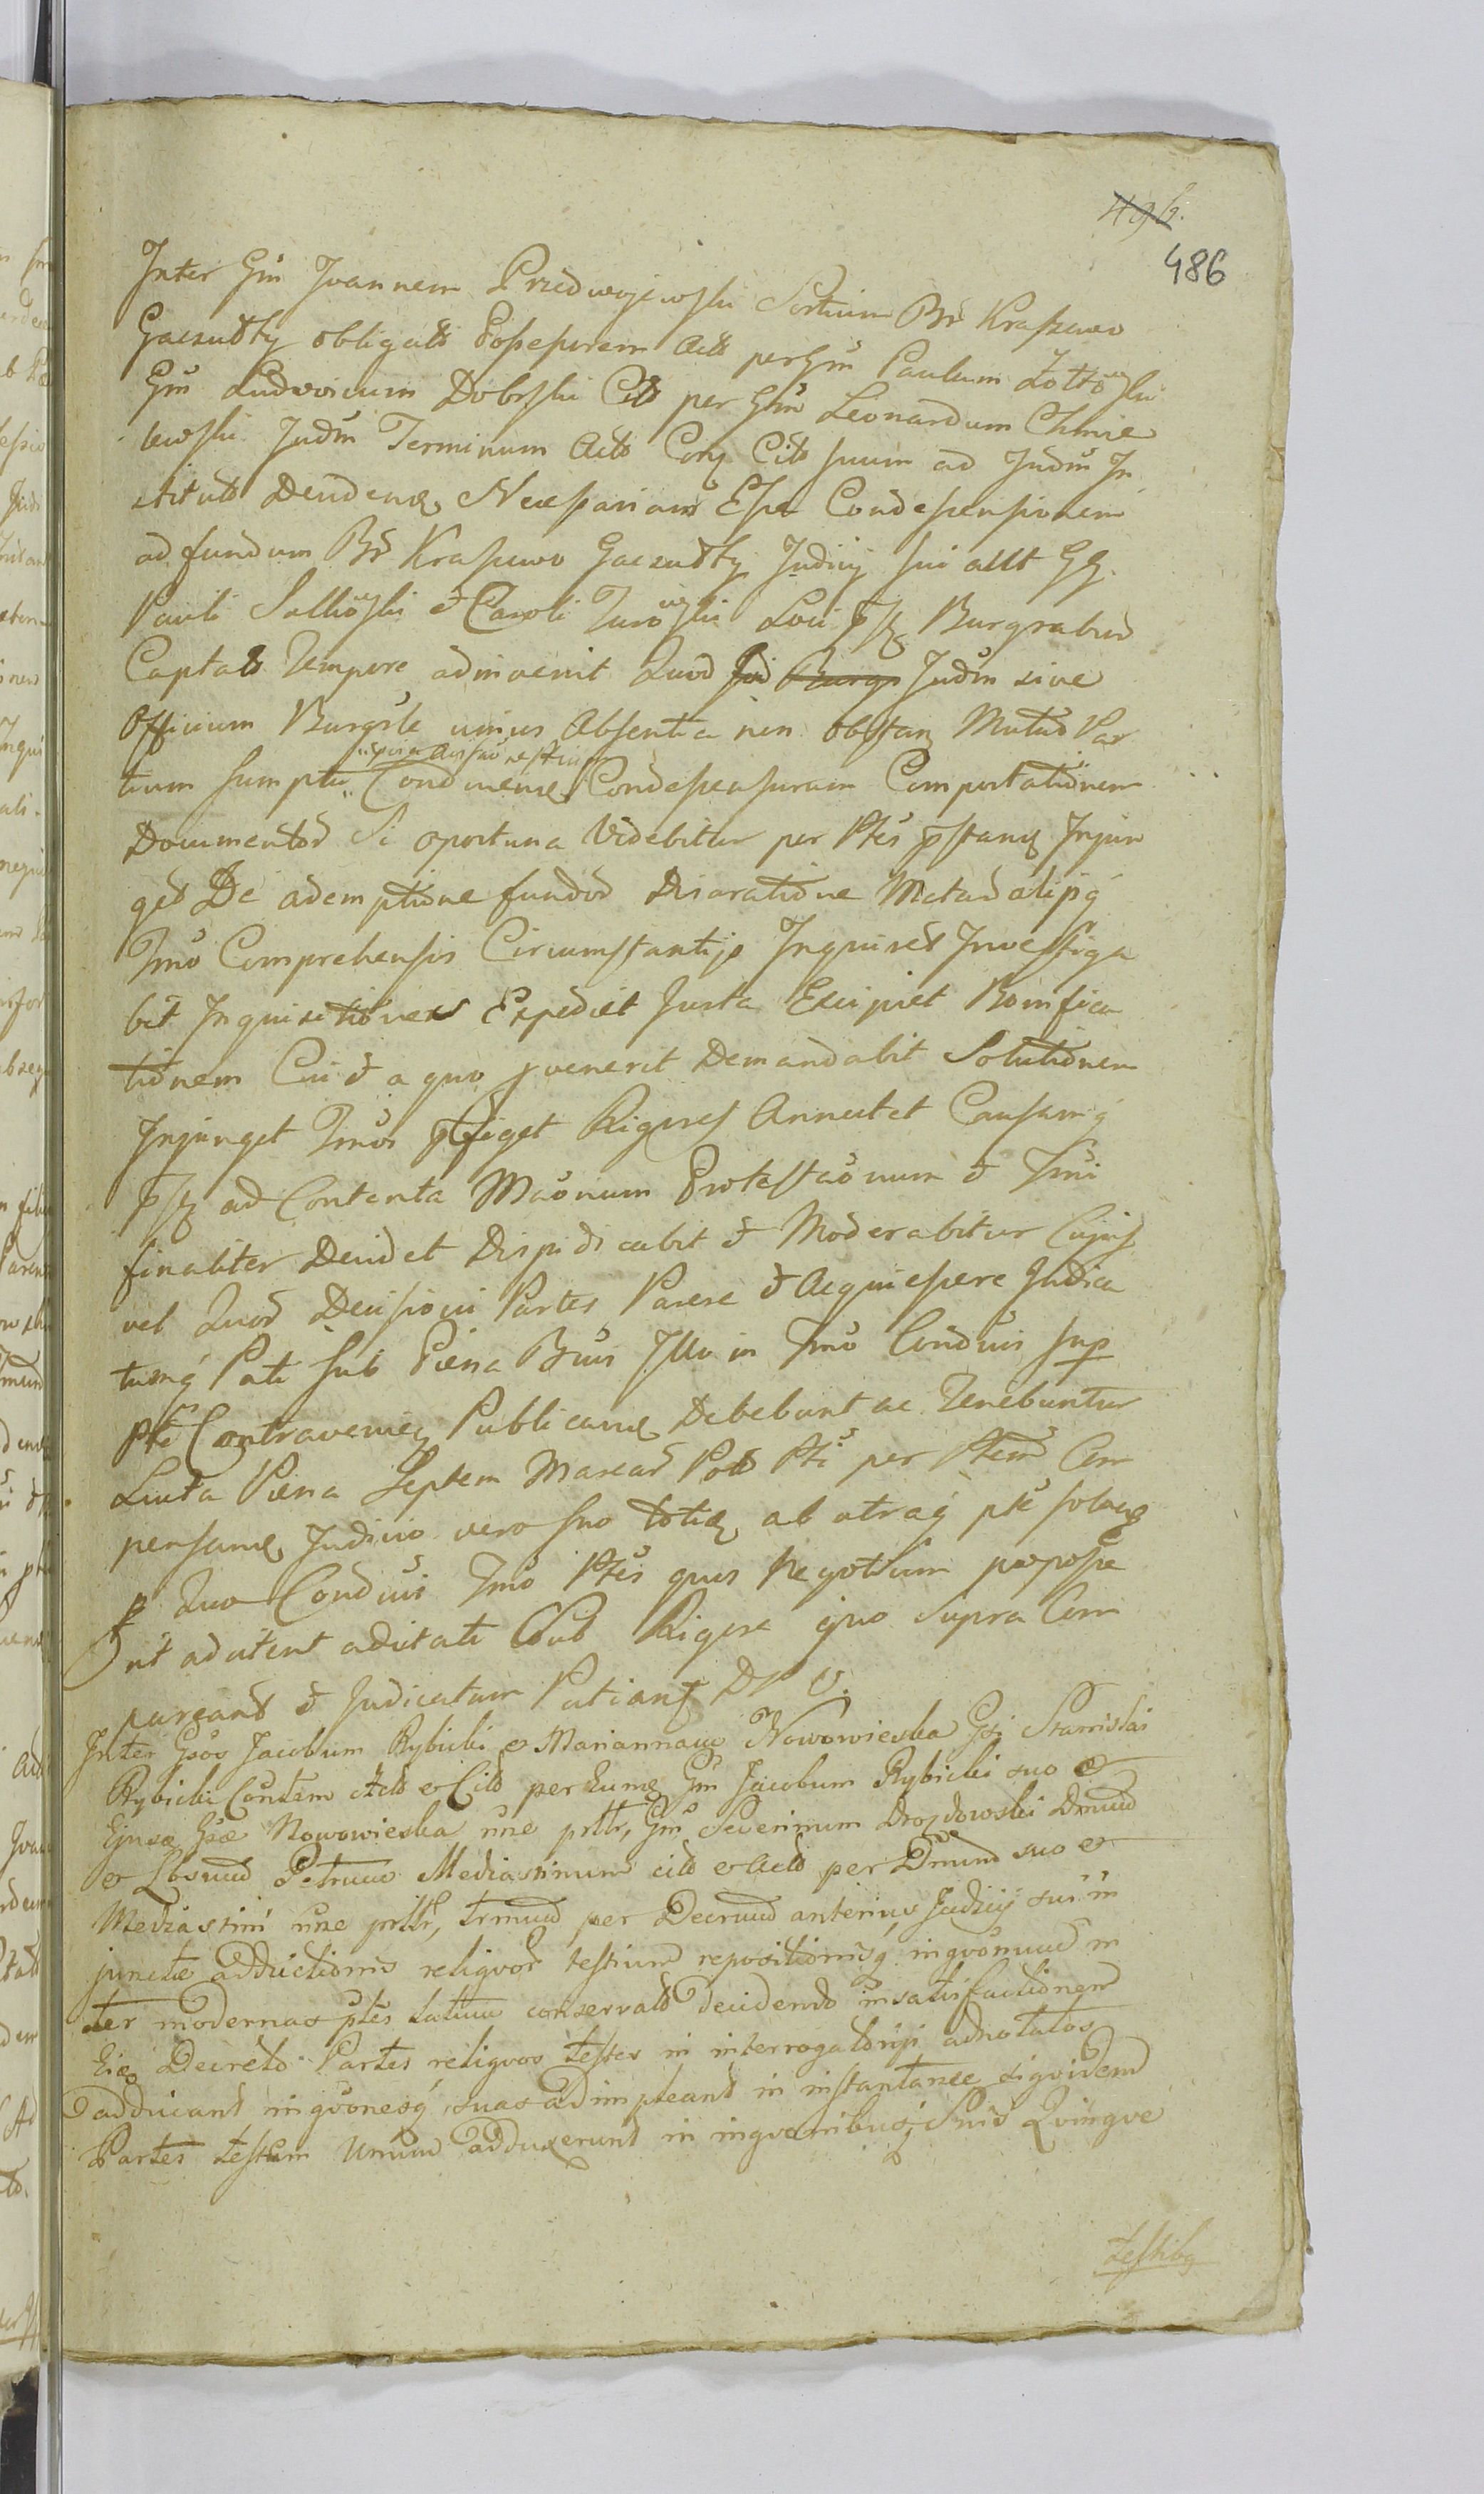 486
Inter Gm Joannem Przedwojewski Sortium Br Kraszewo
Gaczułty obligato Possessorem Acto per Gm Paulum Żołtowski
Gm Ludovicum Dobrski Cito per Gm Leonardum Chmie
lewski Judm Terminum Acto Cory Cito suum ad Judm In
stituto Decidens Necessariam Esse Condescensionem
ad fundum Br Kraszewo Gaczułty Judicij sui
Pauli et Caroli Burgrabior
Captato Tempore adinvenit Quod Judm sive
Officium Burgrle unius Absentia non obstan Mutuo Par
tium sumptu Conducens Condescensuram Comportationem
Documentor Si oportuna Videbitur per Ptes Injun
get De ademptione fundor Disaratione Metar alijsq
Tmo Comprehensis Circumstantijs Inquiret Investiga
bit Inquisitiones Expediet Justa Excipiet Bonifica
tionem Cui et a quo venerit Demandabit Solutionem
Injunget Tmos figet Rigores Annectet Causamq
ad Contenta Maonum Protestaonum et Tmi
finaliter Decidet Dispudicabit et Moderabitur Cujus
vel Quor Decisioni Partes Parere et Acquiescere Judica
tumq Pati sub Pœna Bnis Illo in Tmo Condvis sup
pte Contravenien Publicans Debebunt ac Tenebuntur
Luita Pœna Septem Marcar Polo Pti per Ptem Com
pensans Judicio vero suo toties ab utraq pte solvens
Quo Condvis Tmo Ptes quus Negotium præposse
nt aditent aditati Sub Rigore quo Supra Com
pareant et Judicatum Patiant D P V.
Inter Gsos Jacobum Rybicki et Mariannam Nowowieska Gsi Stanislai
Rybicki Contem Acto et Cito per Eume Gm Jacobum Rybicki suo et
Ejusæ Gsæ Nowowieska nne prttr, Gm Severinum Drozdowski Dnum
et Lbsum Petrum Mediastinum cito et Acto per Dnum suo et
Mediastini nne prttr, trmum per Decrum anterius Judicij sui in
junctæ adductionis reliquor testium repositionisq inqvonum in
ter modernas ptes latum conservato Decidendo in satisfactionem
Eiæ Decreto Partes reliquos testes in interrogatorijs adnotatos
adducant inqvonesq suas adimpleant in instantanee siqvidem
Partes testem Unum adduxerunt in inqvonibus Suis Qvinqve
testibq